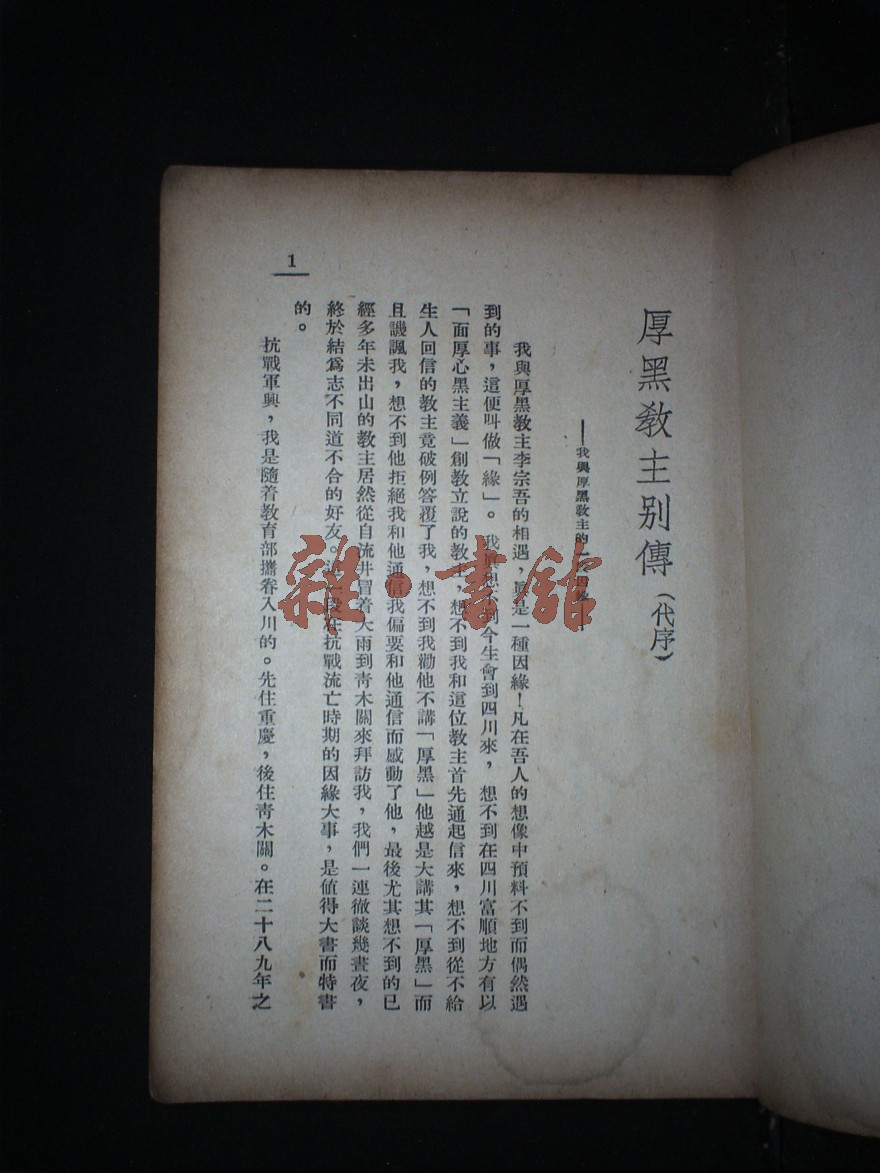 厚黑敎主别傳(代序)
——我與厚黑敎主的一段因緣——
我與厚黑敎主李宗吾的相遇,眞是一種因緣!凡在吾人的想像中預料不到而偶然遇
到的事,這便叫做「緣」。我眞想不到今生會到四川來,想不到在四川富順地方有以
「面厚心黑主義」創敎立說的敎主,想不到我和這位敎主首先通起信來,想不到從不給
生人回信的敎主竟破例答覆了我,想不到我勸他不講「厚黑」他越是大講其「厚黑」而
且譏諷我,想不到他拒絕我和他通信我偏要和他通信而感動了他,最後尤其想不到的已
經多年未出山的敎主居然從自流井冒着大雨到靑木關來拜訪我,我們一連徹談幾晝夜,
終於結爲志不同道不合的好友。這一段在抗戰流亡時期的因緣大事,是値得大書而特書
的。
抗戰軍興,我是隨着敎育部攜眷入川的。先住重慶,後住靑木關。在二十八九年之
1
雜·書館